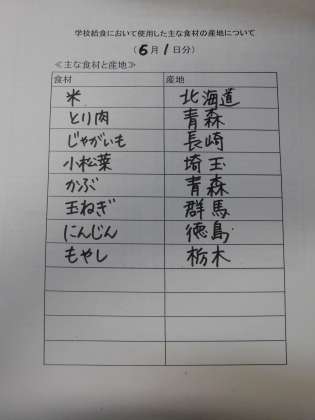 学校給食において使用した主な食材の産地について
(6月1日分)
≪主な食材と産地≫
食材 産地
米 北海道
とり肉 青森
じゃがいも 長崎
小松菜 埼玉
かぶ 青森
玉ねぎ 群馬
にんじん 徳島
もやし 栃木